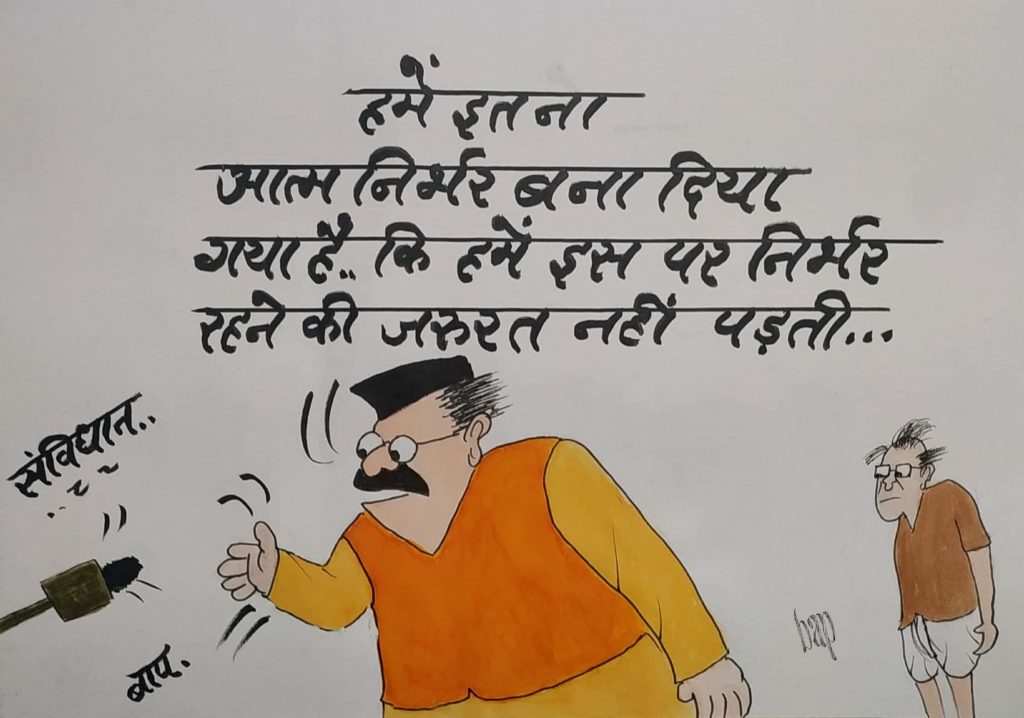 हमें इतना
आत्म निर्भर बना दिया
गया है.. कि हमें इस पर निर्भर
रहने की जरुरत नहीं पड़ती...
संविधान..
बाप.
baap